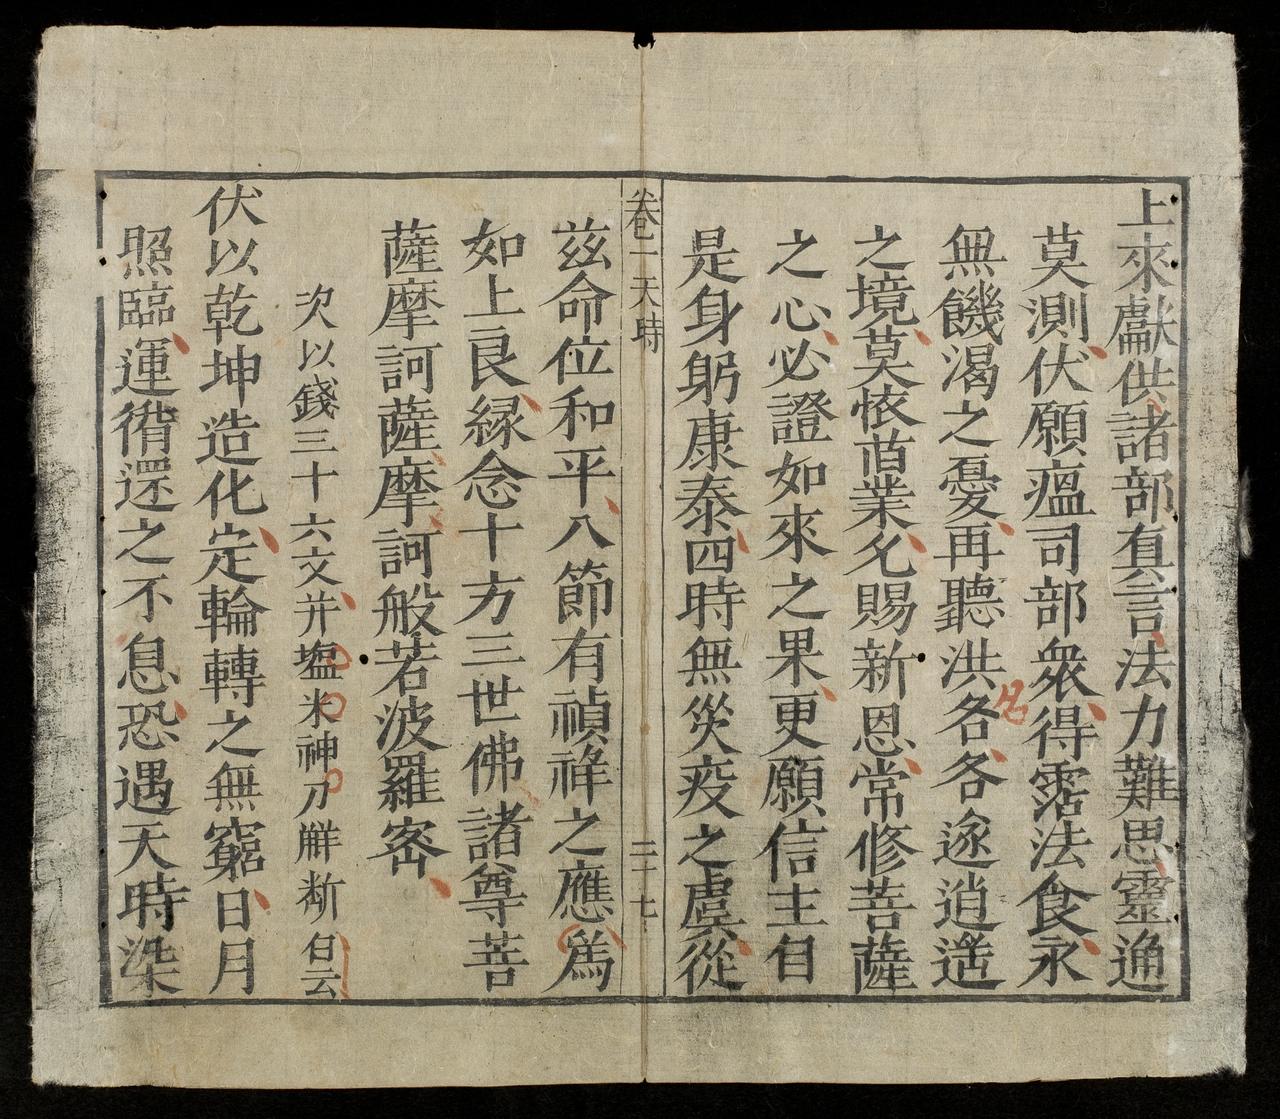 上來獻供諸部真言法力難思靈通
莫測伏願瘟司部衆得霑法食永
無饑渴之憂再聽洪各各遂逍遥
名
之境莫依舊業允賜新恩常修菩薩
之心必證如來之果更願信主自
是身躬康泰四時無災疫之虞從
卷一天時
二十七
茲命位和平八節有禎祥之應爲
如上良緣念十方三世佛諸尊菩
薩摩訶薩摩訶般若波羅密
次以錢三十六文并塩米神刀觧断白云
伏以乾坤造化定輪轉之無窮日月
照臨運徃還之不息恐遇天時染